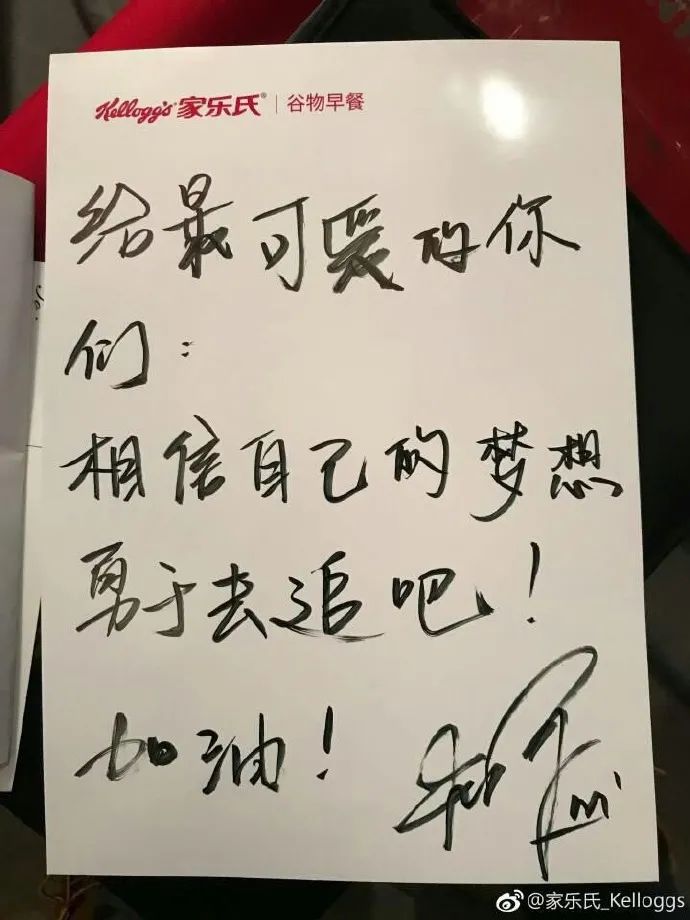 Kellogg's 家乐氏® | 谷物早餐
给最可爱的你
们:
相信自己的梦想
勇于去追吧!
加油!
@家乐氏_Kelloggs